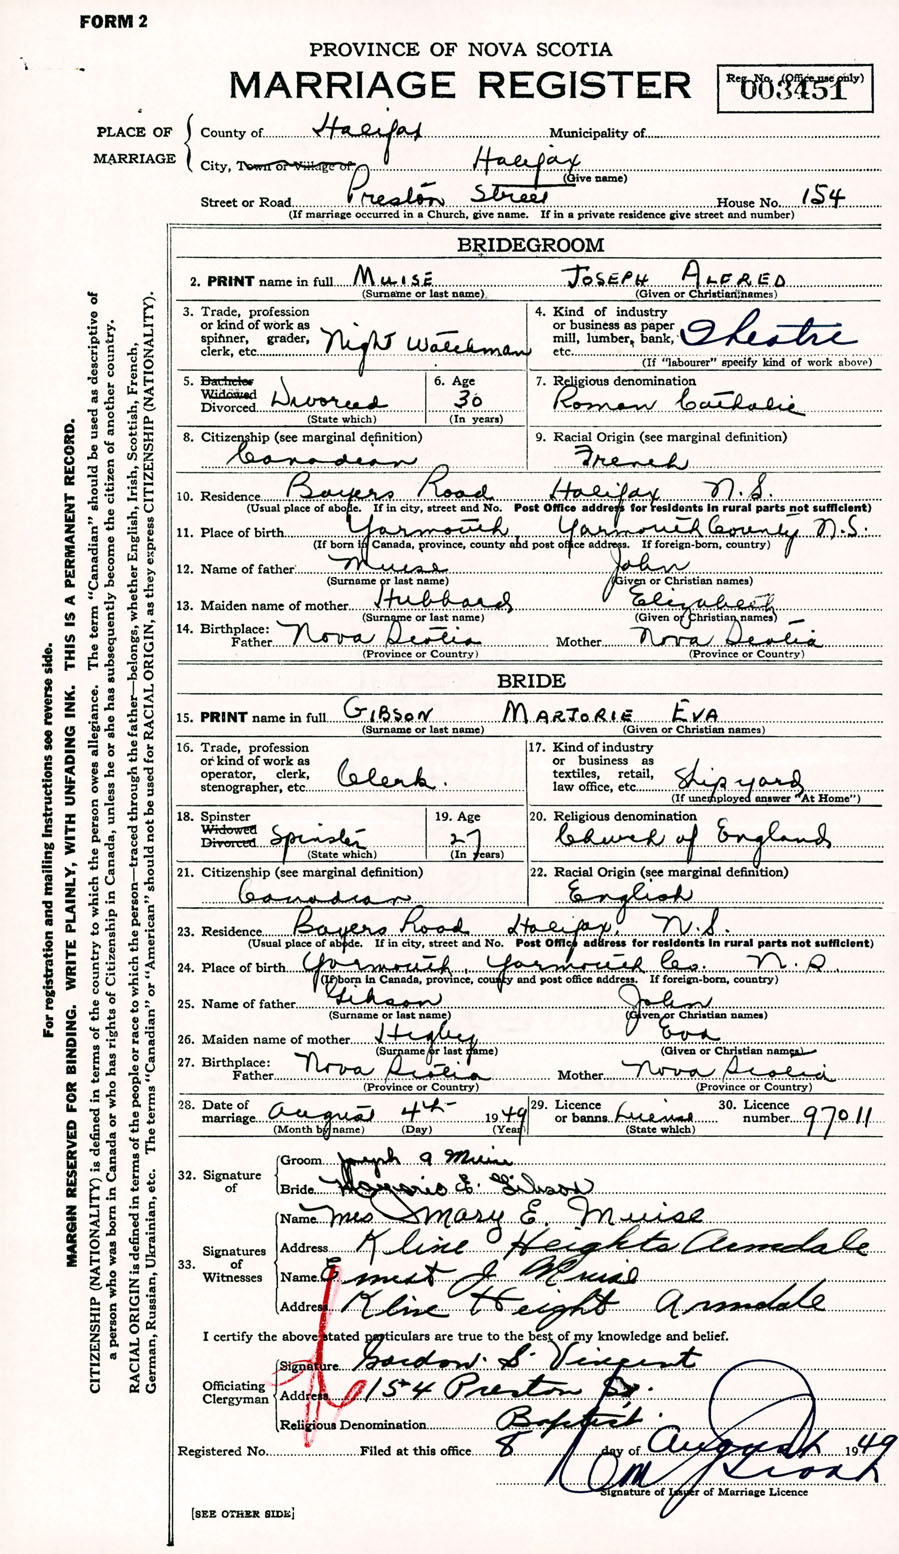 FORM 2
PROVINCE OF NOVA SCOTIA
MARRIAGE REGISTER
Reg. No. (Office use only)
003451
PLACE OF MARRIAGE
County of Halifax Municipality of
City, Town or Village of Halifax
(Give name)
Street or Road Preston Street House No. 154
(If marriage occurred in a Church, give name. If in a private residence give street and number)
BRIDEGROOM
2. PRINT name in full MUISE JOSEPH ALFRED
(Surname or last name) (Given or Christian names)
3. Trade, profession or kind of work as spinner, grader, clerk, etc. Night Watchman
4. Kind of industry or business as paper mill, lumber, bank, etc. Theatre
(If "labourer" specify kind of work above)
5. Bachelor Widowed Divorced Divorced
(State which)
6. Age 30
(In years)
7. Religious denomination
Roman Catholic
8. Citizenship (see marginal definition)
Canadian
9. Racial Origin (see marginal definition)
French
10. Residence Bayers Road Halifax N.S.
(Usual place of abode. If in city, street and No. Post Office address for residents in rural parts not sufficient)
11. Place of birth Yarmouth, Yarmouth County N.S.
(If born in Canada, province, county and post office address. If foreign-born, country)
12. Name of father Muise John
(Surname or last name) (Given or Christian names)
13. Maiden name of mother Hubbard Elizabeth
(Surname or last name) (Given or Christian names)
14. Birthplace: Father Nova Scotia Mother Nova Scotia
(Province or Country) (Province or Country)
BRIDE
15. PRINT name in full GIBSON MARJORIE EVA
(Surname or last name) (Given or Christian names)
16. Trade, profession or kind of work as operator, clerk, stenographer, etc. Clerk.
17. Kind of industry or business as textiles, retail, law office, etc. Shipyard
(If unemployed answer "At Home")
18. Spinster Widowed Divorced Spinster
(State which)
19. Age 27
(In years)
20. Religious denomination
Church of England
21. Citizenship (see marginal definition)
Canadian
22. Racial Origin (see marginal definition)
English
23. Residence Bayers Road Halifax, N.S.
(Usual place of abode. If in city, street and No. Post Office address for residents in rural parts not sufficient)
24. Place of birth Yarmouth, Yarmouth Co. N.S.
(If born in Canada, province, county and post office address. If foreign-born, country)
25. Name of father Gibson John
(Surname or last name) (Given or Christian names)
26. Maiden name of mother Higby Eva
(Surname or last name) (Given or Christian names)
27. Birthplace: Father Nova Scotia Mother Nova Scotia
(Province or Country) (Province or Country)
28. Date of marriage August 4th 1949
(Month by name) (Day) (Year)
29. Licence or banns License
(State which)
30. Licence number 97011
32. Signature of
Groom Joseph A Muise
Bride Marjorie E. Gibson
33. Signatures of Witnesses
Name Mrs Mary E. Muise
Address Kline Heights Armdale
Name Ernest J Muise
Address Kline Height Armdale
I certify the above stated particulars are true to the best of my knowledge and belief.
Officiating Clergyman
Signature Gordon S. Vincent
Address 154 Preston St.
Religious Denomination Baptist.
Registered No. Filed at this office 8 day of August 1949
Signature of Issuer of Marriage Licence
[SEE OTHER SIDE]
For registration and mailing instructions see reverse side.
MARGIN RESERVED FOR BINDING. WRITE PLAINLY, WITH UNFADING INK. THIS IS A PERMANENT RECORD.
CITIZENSHIP (NATIONALITY) is defined in terms of the country to which the person owes allegiance. The term "Canadian" should be used as descriptive of
a person who was born in Canada or who has rights of Citizenship in Canada, unless he or she has subsequently become the citizen of another country.
RACIAL ORIGIN is defined in terms of the people or race to which the person—traced through the father—belongs, whether English, Irish, Scottish, French,
German, Russian, Ukrainian, etc. The terms "Canadian" or "American" should not be used for RACIAL ORIGIN, as they express CITIZENSHIP (NATIONALITY).